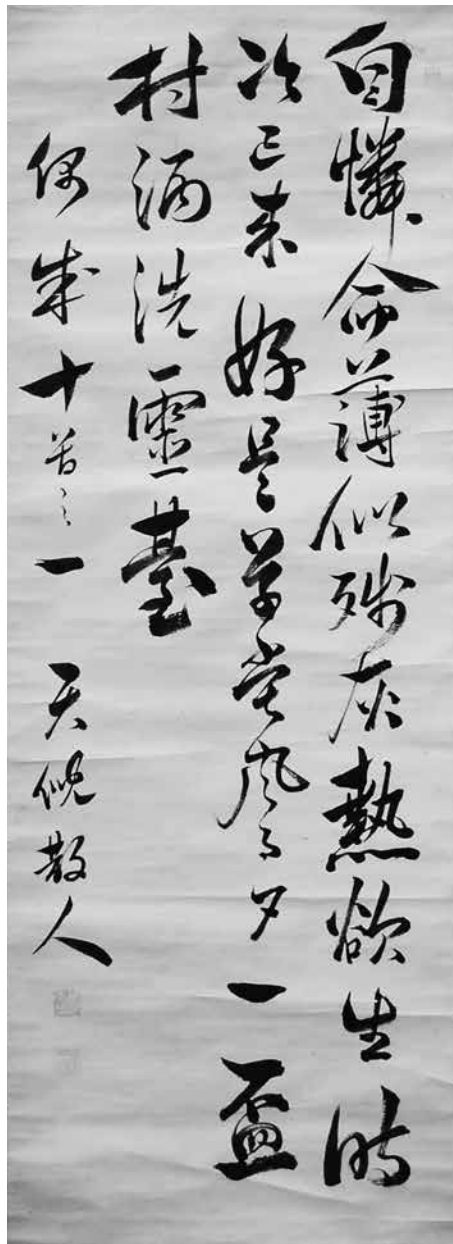 自憐命薄似殘灰熱欲生時
冷已来好是草堂風雨夕一盃
村酒洗靈臺
偶成十首之一 天倪散人